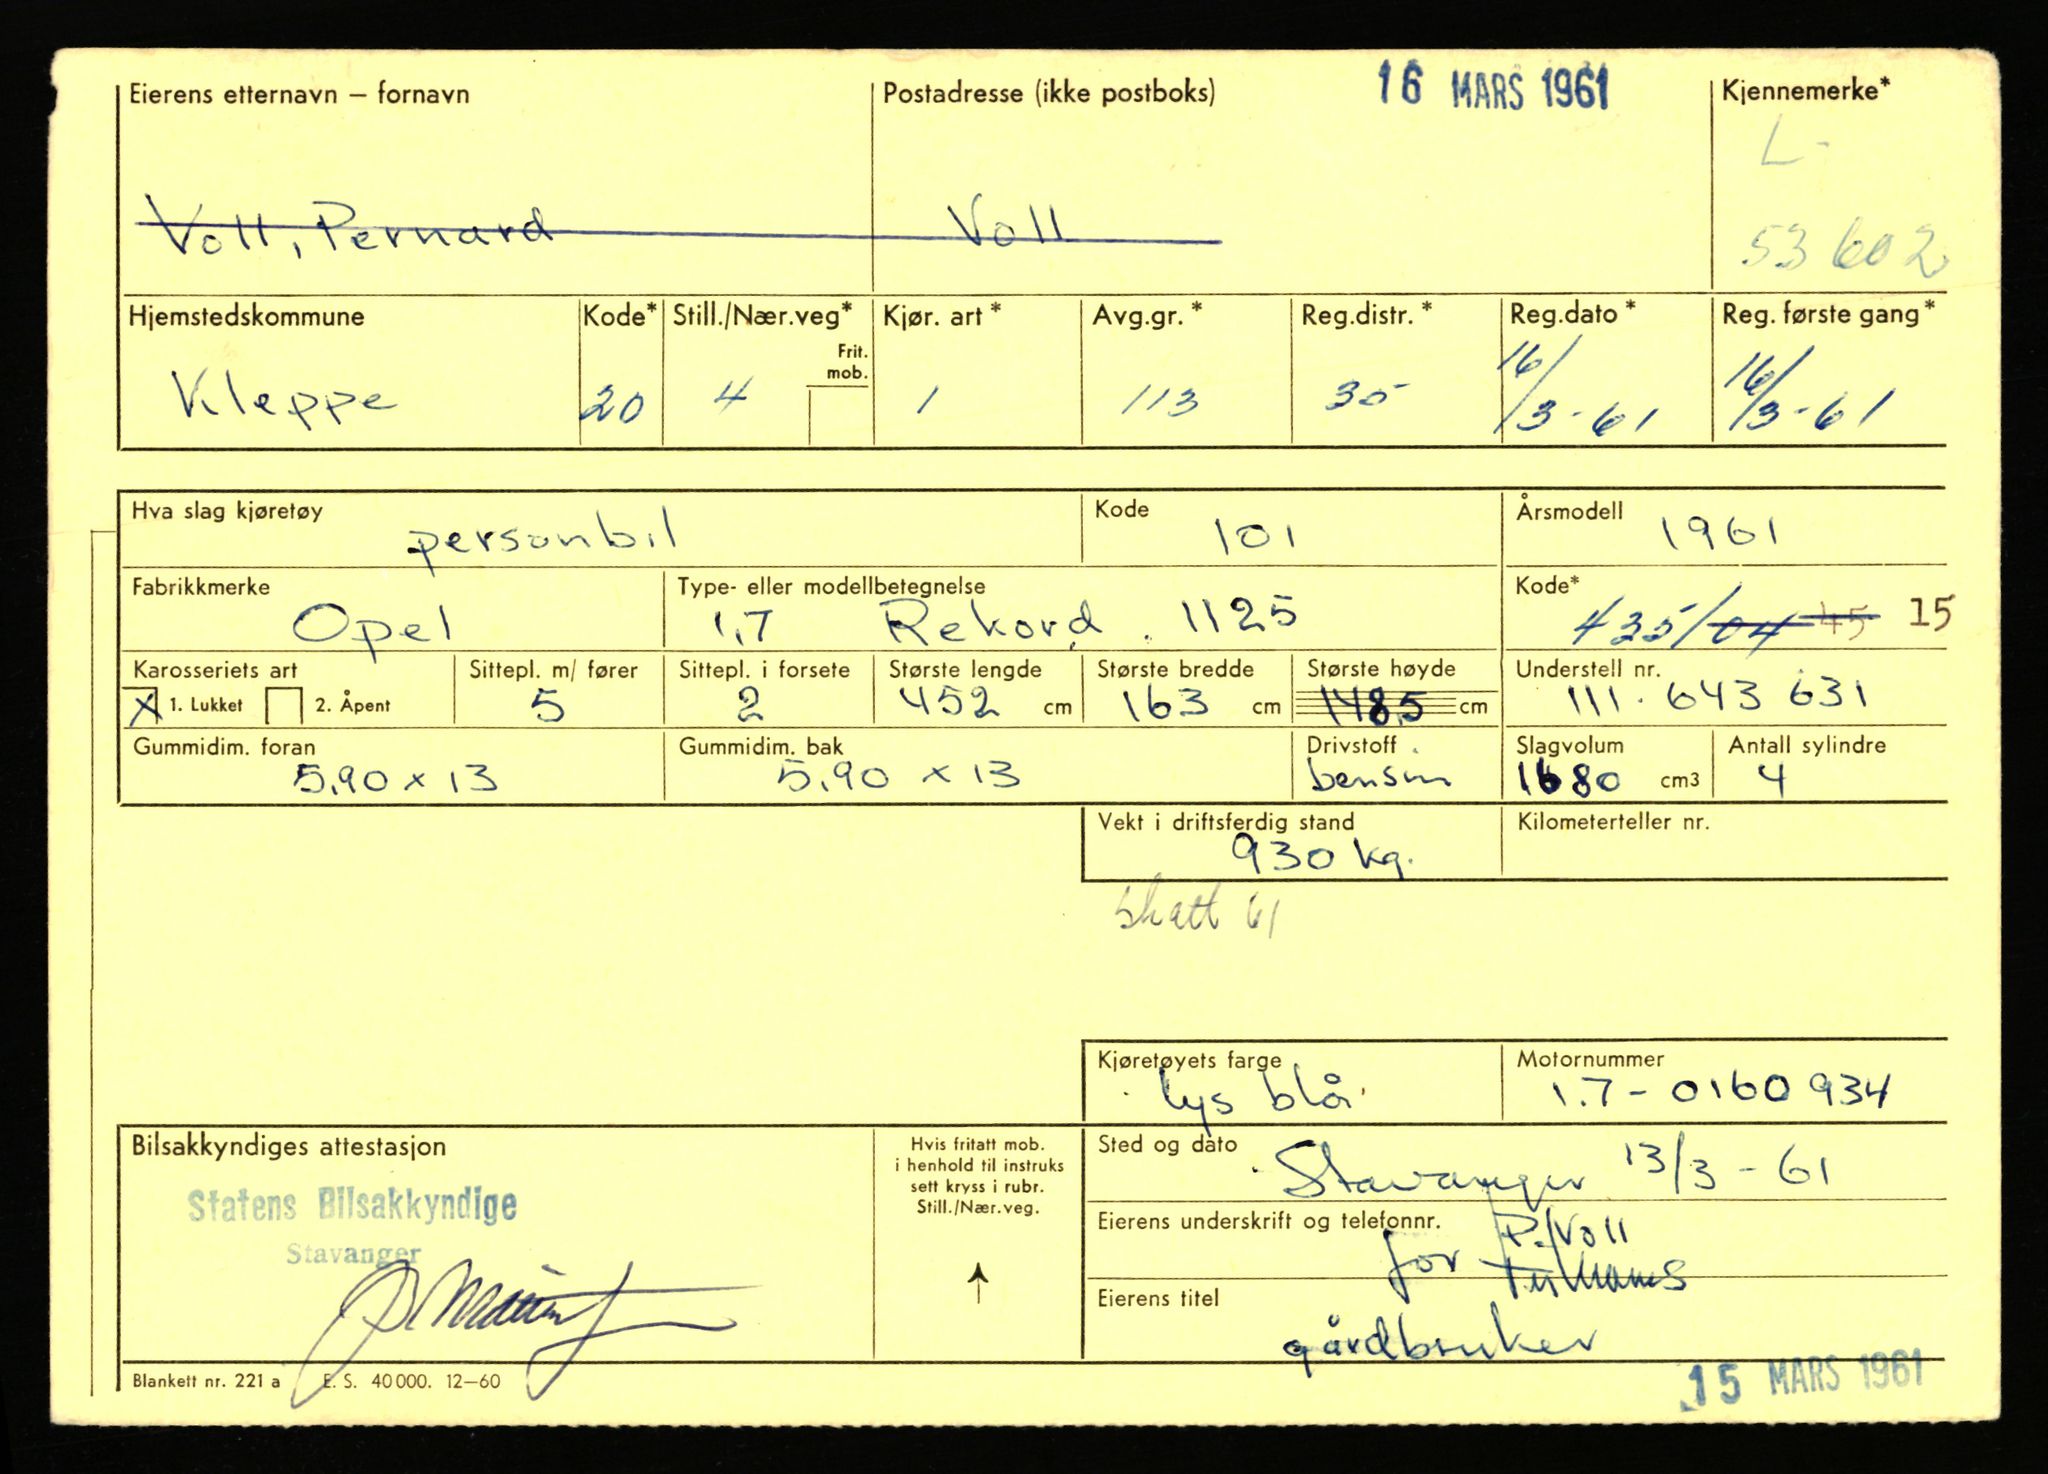 Eierens etternavn – fornavn Postadresse (ikke postboks) 16 MARS 1961 Kjennemerke*
L-
Voll, Pernard Voll 53602
Hjemstedskommune Kode* Still./Nær.veg* Kjør. art* Avg.gr.* Reg.distr.* Reg.dato* Reg. første gang*
Frit. mob.
Kleppe 20 4 1 113 35 16/3-61 16/3-61
Hva slag kjøretøy personbil Kode 101 Årsmodell 1961
Fabrikkmerke Type- eller modellbetegnelse Kode*
Opel 1,7 Rekord. 1125 435/04 45 15
Karosseriets art Sittepl. m/ fører Sittepl. i forsete Største lengde Største bredde Største høyde Understell nr.
X 1. Lukket 2. Åpent 5 2 452 cm 163 cm 148,5 cm 111.643 631
Gummidim. foran Gummidim. bak Drivstoff Slagvolum Antall sylindre
5,90 x 13 5,90 x 13 bensin 1680 cm3 4
Vekt i driftsferdig stand Kilometerteller nr.
930 kg.
skatt 61
Kjøretøyets farge Motornummer
lys blå 1.7-0160934
Bilsakkyndiges attestasjon Hvis fritatt mob. Sted og dato
i henhold til instruks Stavanger 13/3-61
sett kryss i rubr.
Still./Nær.veg.
Statens Bilsakkyndige Eierens underskrift og telefonnr.
Stavanger P. Voll
for
Eierens titel
gårdbruker
Blankett nr. 221 a E. S. 40000. 12–60 15 MARS 1961